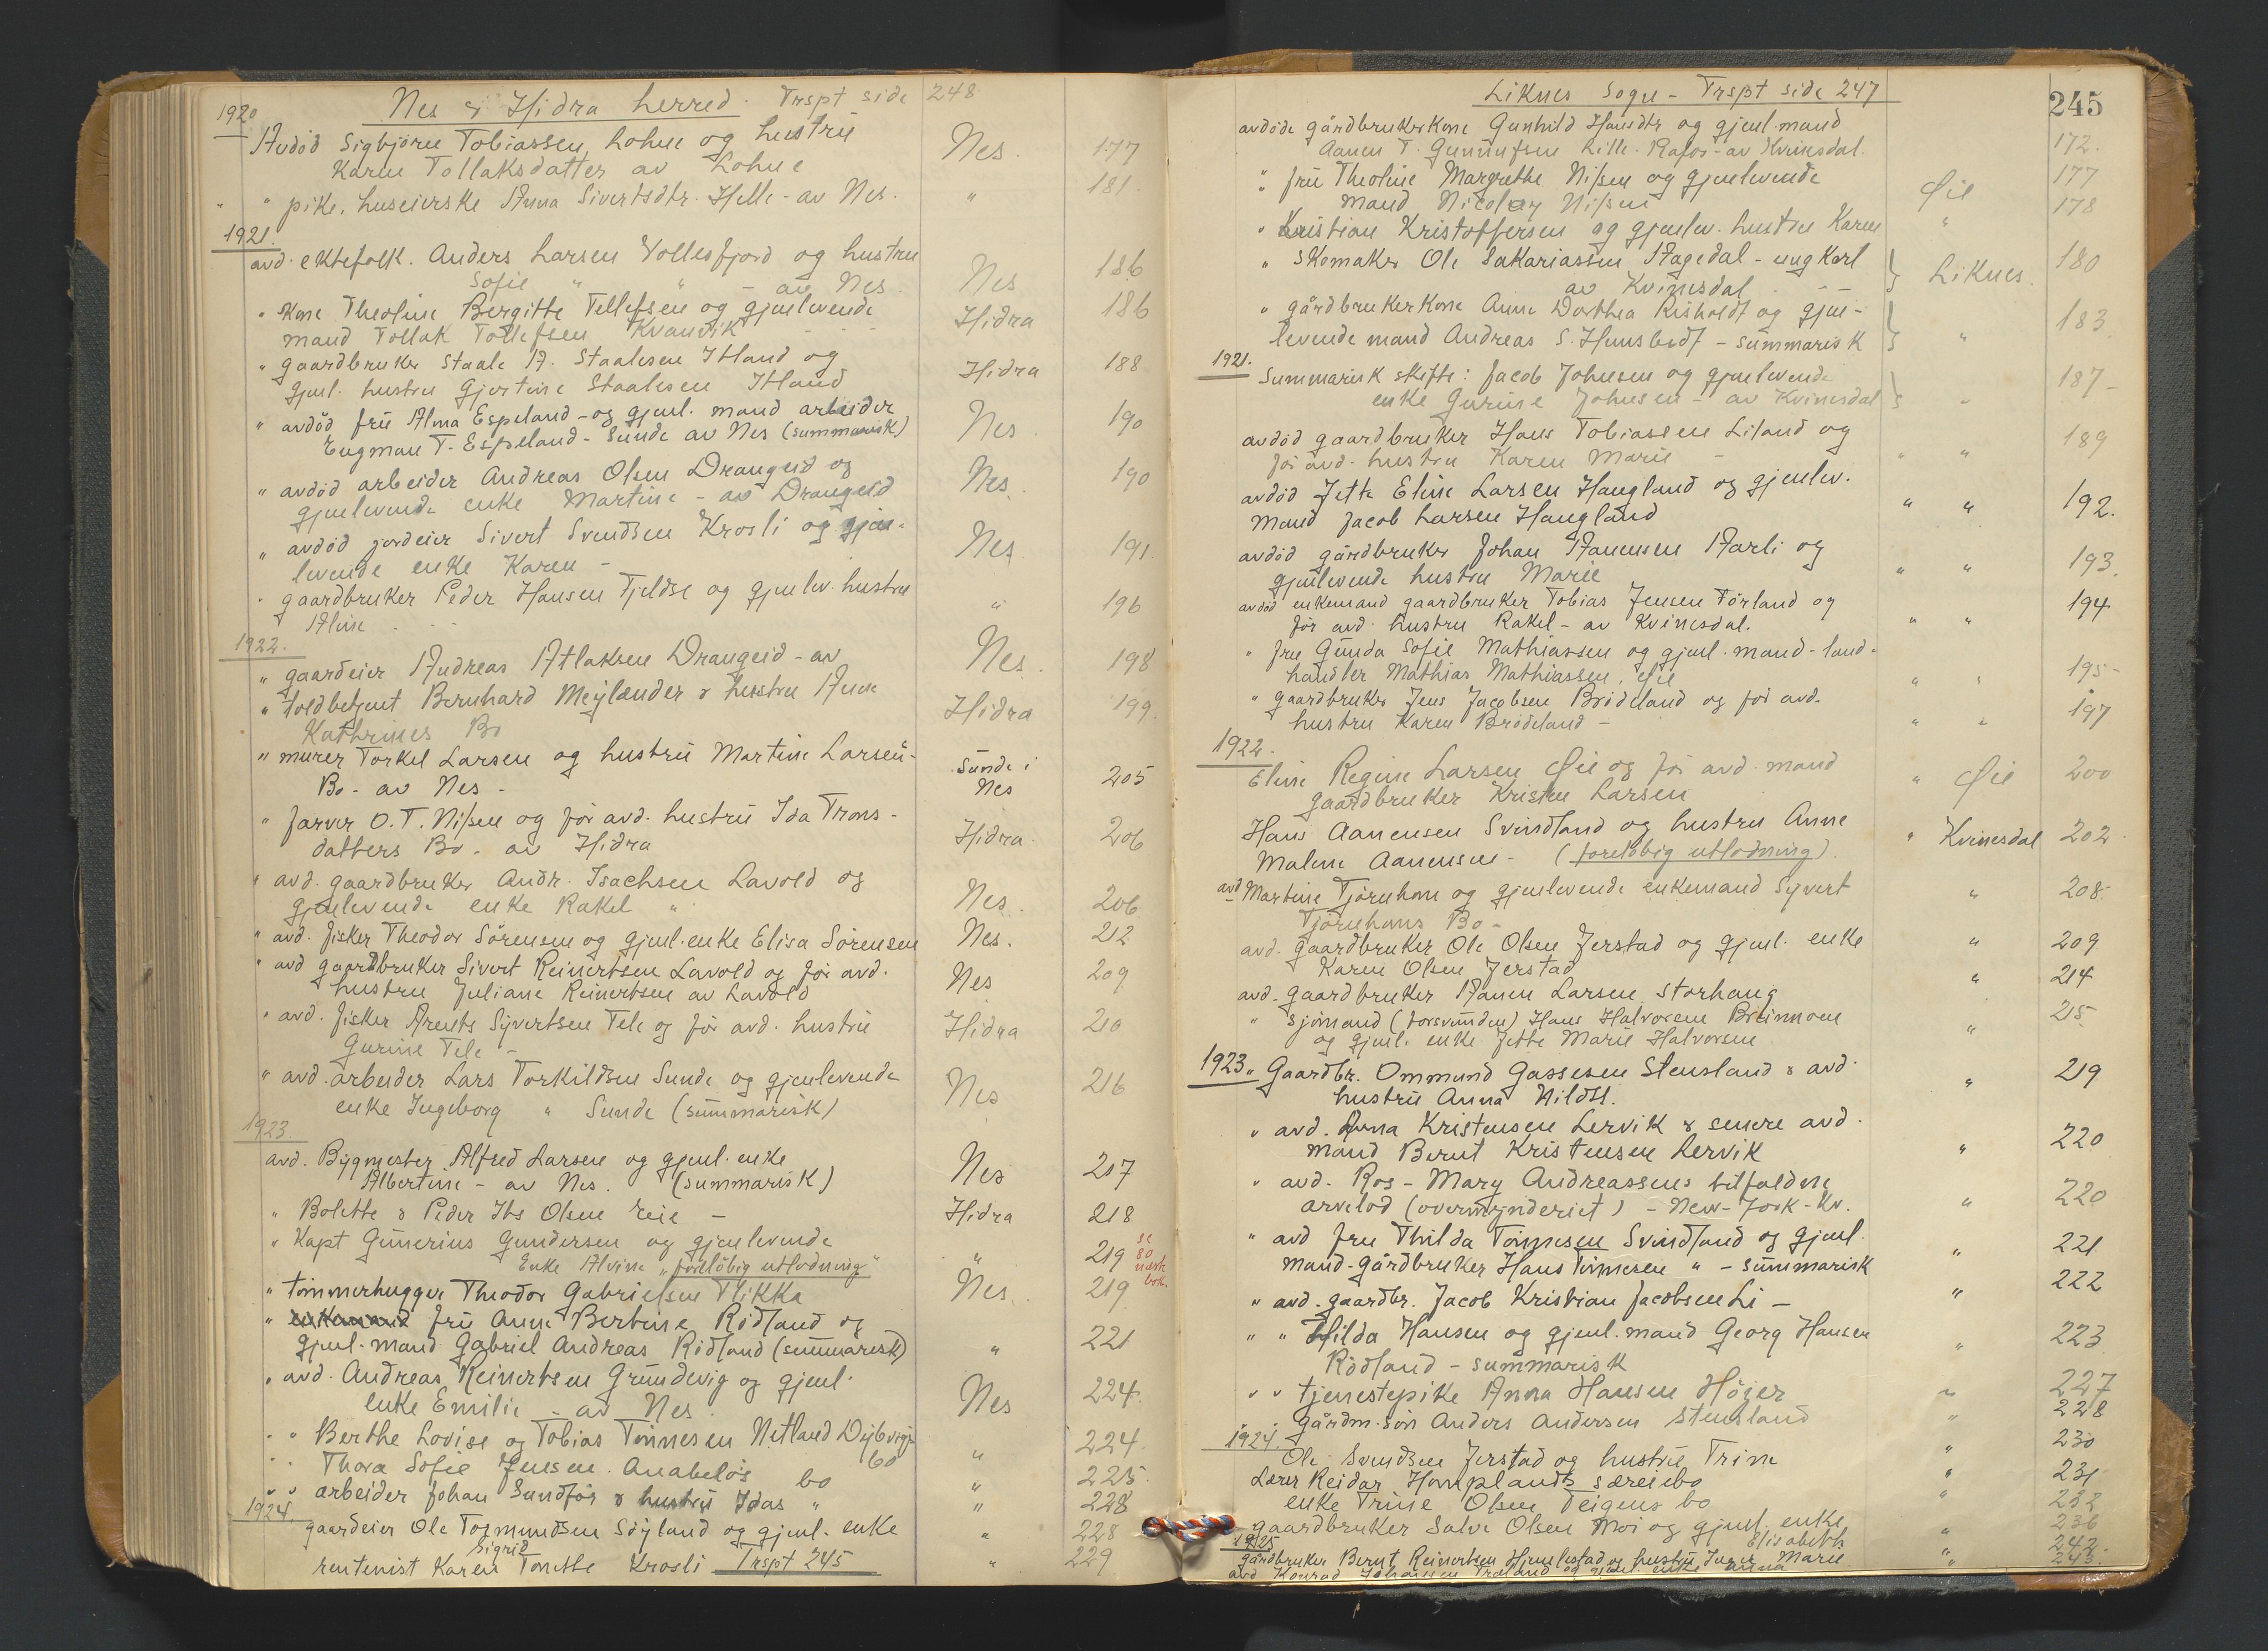 1920 Nes & Hidra herred. Trspt side 248
Avdöd Sigbjörn Tobiassen Lohne og hustru
Karen Tollaksdatter av Lohne Nes. 177
" " pike, huseierske Anna Sivertsdtr. Helle - av Nes. " 181.
1921.
avd. ektefolk. Anders Larsen Vollesfjord og hustru
Sofie " " - av Nes. Nes 186
" Kone Theoline Bergitte Tellefsen og gjenlevende
mand Tollak Tollefsen Kvanvik Hidra 186
" gaardbruker Staale A. Staalesen Itland og
gjenl. hustru Gjertine Staalesen Itland Hidra 188
" avdöd fru Alma Espeland - og gjenl. mand arbeider
Engman T. Espeland - Sunde av Nes (summarisk) Nes 190
" avdöd arbeider Andreas Olsen Drangeid og
gjenlevende enke Martine - av Drangeid Nes. 190
" avdöd jordeier Sivert Svendsen Krosli og gjen-
levende enke Karen - Nes 191.
" gaardbruker Peder Hansen Fjeldse og gjenlev. hustru
Aline " 196
1922.
" gaardeier Andreas Atlaksen Drangeid - av Nes. 198
" toldbetjent Bernhard Meylænder & hustru Anne
Kathrines Bo Hidra 199.
" murer Torkel Larsen og hustru Martine Larsen-
Bo - av Nes - Sunde i Nes 205
" farver O. T. Nissen og för avd. hustru Ida Trons-
datters Bo - av Hidra Hidra. 206
" avd. gaardbruker Andr. Isachsen Lavold og
gjenlevende enke Rakel " Nes. 206
" avd. fisker Theodor Sörensen og gjenl. enke Elisa Sörensen Nes. 212
" avd gaardbruker Sivert Reinertsen Lavold og för avd.
hustru Juliane Reinertsen av Lavold Nes 209
" avd. fisker Arents Syvertsen Tele og för avd. hustru
Gurine Tele - Hidra 210
" avd. arbeider Lars Torkildsen Sunde og gjenlevende
enke Ingeborg " Sunde (summarisk) Nes 216
1923.
avd. Bygmester Alfred Larsen og gjenl. enke
Albertine - av Nes. (summarisk) Nes 217
" Bolette & Peder Ibs Olsen Eie - Hidra 218
" Kapt Gunerius Gundersen og gjenlevende
Enke Alvine "foreløbig utlodning" " 219 se 80
" tömmerhugger Theodor Gabrielsen Flikka Nes. 219
" enkemand fru Anne Bertine Rödland og
gjenl. mand Gabriel Andreas Rödland (summarisk) " 221
" avd. Andreas Reinertsen Grundevig og gjenl.
enke Emilie - av Nes. Nes 224.
" " Berthe Lovise og Tobias Tönnesen Netland Dybvigs bo " 224.
" " Thora Sofie Jensen Anabelös bo " 225.
" " arbeider Johan Sundför & hustru Idas " " 228
1924.
gaardeier Ole Tormundsen Söyland og gjenl. enke " 228
Sigrid
rentenist Karen Tonette Krosli Trspt 245 " 229
Liknes Sogn - Trspt side 247 245
avdöde gårdbrukerkone Gunhild Hansdtr og gjenl. mand
Aanen T. Gunnufsen Lille-Rafos - av Kvinesdal. 172.
" fru Theoline Margrethe Nissen og gjenlevende
mand Nicolay Nissen Øie 177
" Kristian Kristoffersen og gjenlev. hustru Karen " 178
" Skomaker Ole Sakariassen Aagedal - ungkarl
av Kvinesdal Liknes. 180
" gårdbrukerkone Anne Dorthea Risholdt og gjen-
levende mand Andreas S. Hunsbedt - summarisk " 183
1921. Summarisk skifte: Jacob Johnsen og gjenlevende
enke Gurine Johnsen - av Kvinesdal " 187-
avdöd gaardbruker Hans Tobiassen Liland og
för avd. hustru Karen Marie - " " 189
avdöd Jette Eline Larsen Haugland og gjenlev.
mand Jacob Larsen Haugland " " 192.
avdöd gårdbruker Johan Aanensen Aarli og
gjenlevende hustru Marie " " 193.
avdöd enkemand gaardbruker Tobias Jensen Förland og
för avd. hustru Rakel - av Kvinesdal. " " 194
" fru Gunda Sofie Mathiassen og gjenl. mand - land-
handler Mathias Mathiassen, Øie " " 195-
" gaardbruker Jens Jacobsen Brödeland og för avd.
hustru Karen Brödeland - " " 197
1922.
Eline Regine Larsen Øie og för avd. mand
gaardbruker Kristen Larsen " Øie 200
Hans Aanensen Svindland og hustru Anne
Malene Aanensen - (foreløbig utlodning). " Kvinesdal 202
avd Martine Tjörnhom og gjenlevende enkemand Syvert
Tjörnhoms Bo - " 208.
avd. gaardbruker Ole Olsen Jerstad og gjenl. enke
Karen Olsen Jerstad " 209
avd. gaardbruker Aanen Larsen Storhaug " 214
" sjömand (forsvunden) Hans Halvorsen Breimoen
og gjenl. enke Jette Marie Halvorsen " 215.
1923 " Gaardbr. Ommund Gassesen Stensland & avd.
hustru Anna Nilsdt. " 219
" avd. Anna Kristensen Lervik & senere avd.
mand Bernt Kristensen Lervik " 220
" avd. Ros-Mary Andreassens tilfaldne
arvelod (overmynderiet) - New-York - Kv. " 220
" avd fru Thilda Tönnesen Svindland og gjenl.
mand-gårdbruker Hans Tönnesen " - summarisk " 221
" avd. gaardbr. Jacob Kristian Jacobsen Li - " 222
" " Hilda Hansen og gjenl. mand Georg Hansen
Rödland - summarisk " 223
" " tjenestepike Anna Hansen Höjer " 227
" " gårdm. sön Anders Andersen Stensland " 228
1924.
Ole Svendsen Jerstad og hustru Trine " 230
Lærer Reidar Homplandts særeiebo " 231
enke Trine Olsen Teigens bo " 232
gaardbruker Salve Olsen Moi og gjenl. enke Elisabeth " 236
1925
gårdbruker Bernt Reinertsen Hjemlestad og hustru Inger Marie " 242.
avd Konrad Johansen Træland og gjenl. enke Anna " 243.